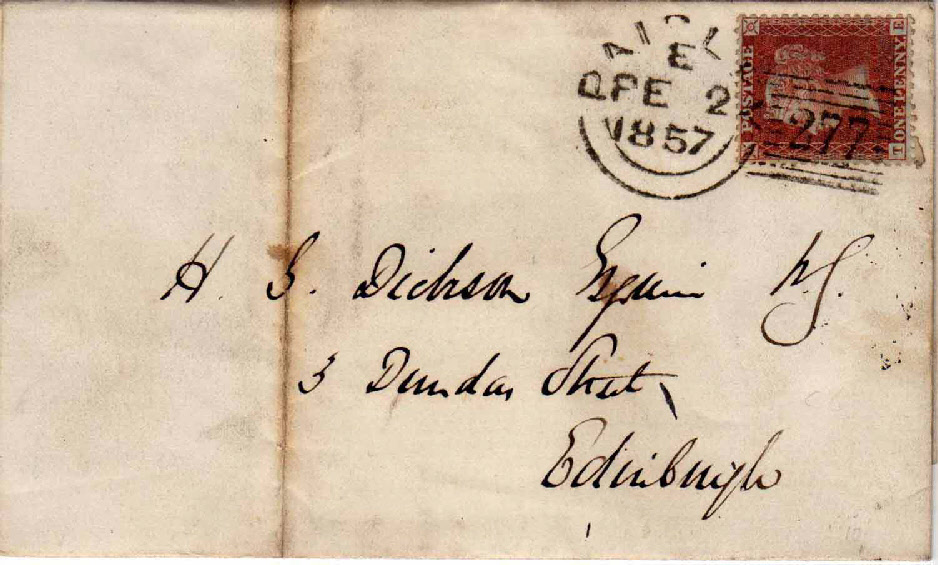 E
PE 2
1857
POSTAGE
ONE PENNY.
E
T
277
H. G. Dickson Esquire W.S.
3 Dundas Street,
Edinburgh